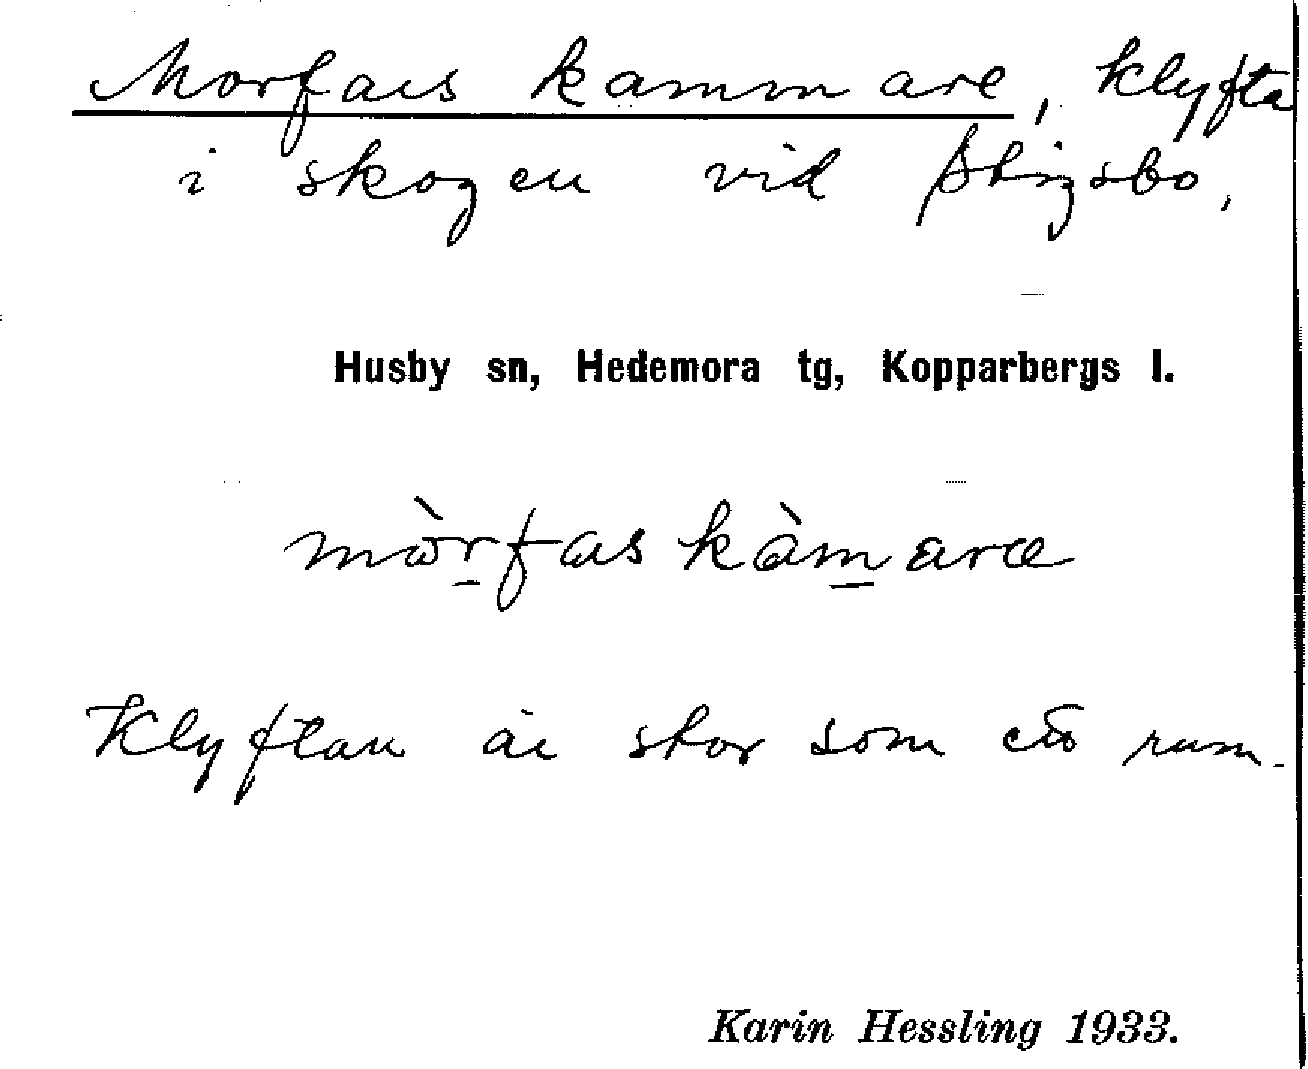 Morfars kammare, klyfta
i skogen vid Stigsbo,
Husby sn, Hedemora tg, Kopparbergs l.
mòrfas kàmara
Klyftan är stor som ett rum.
Karin Hessling 1933.